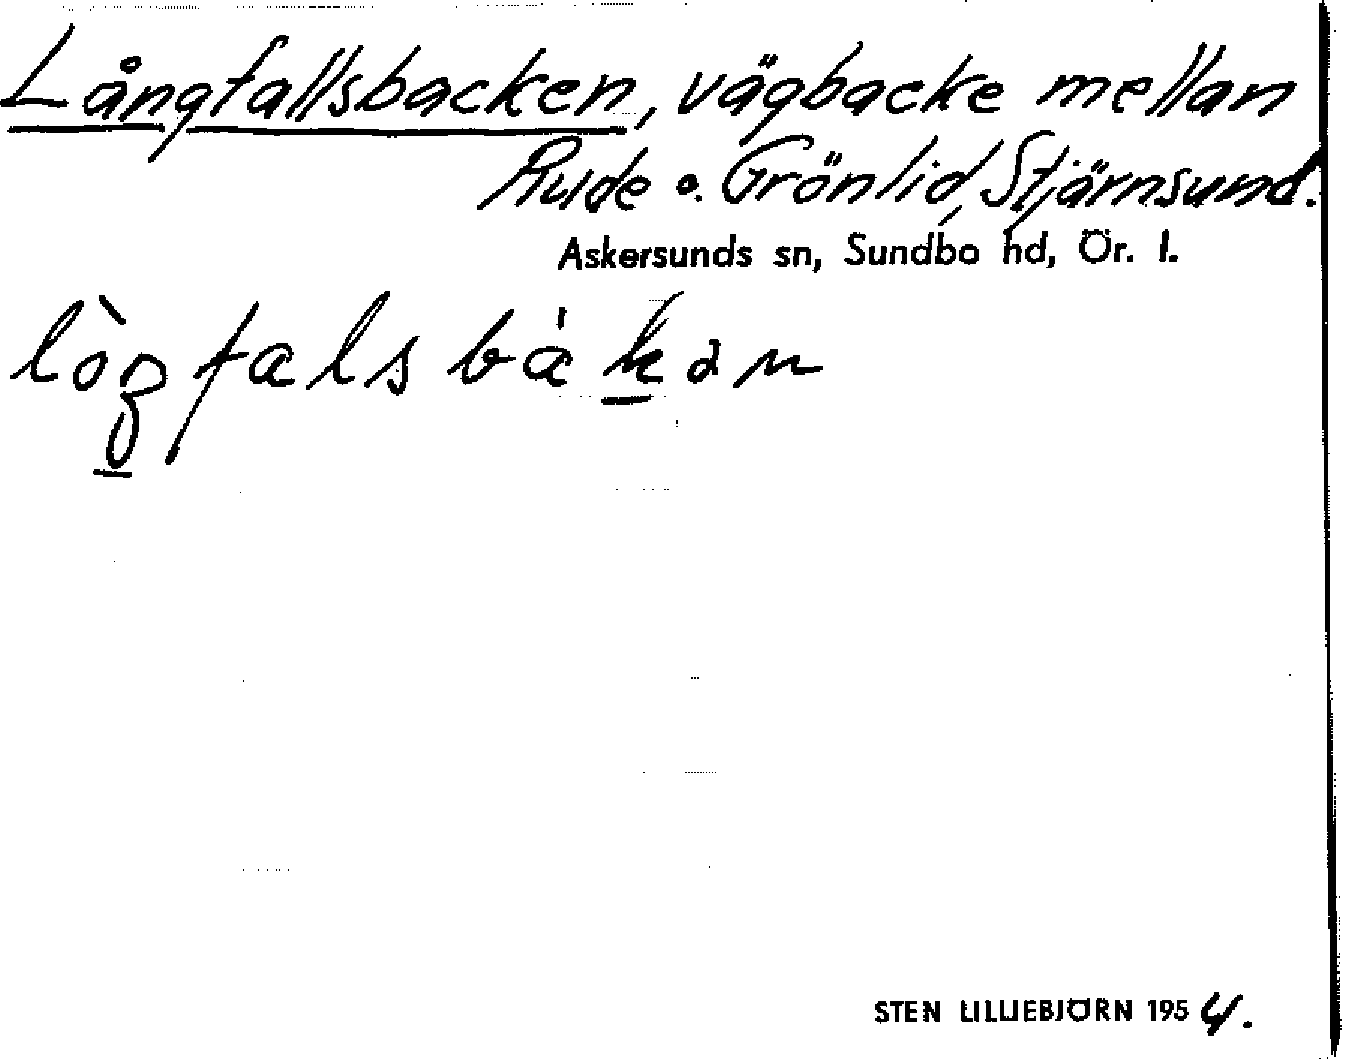 Långfallsbacken, vägbacke mellan
Rude o. Grönlid, Stjärnsund.
Askersunds sn, Sundbo hd, Ör. l.
STEN LILLIEBJÖRN 1954.